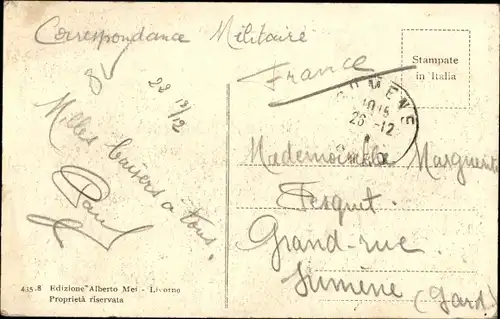 Correspondance Militaire
France
Stampate
in Italia
SUMENE
1015
26 -12
Milles baisers a tous.
Paul
Mademoiselle Marguerite
Fesquet
Grand-rue
Sumène (Gard)
435.8 Edizione Alberto Mei - Livorno
Proprietà riservata